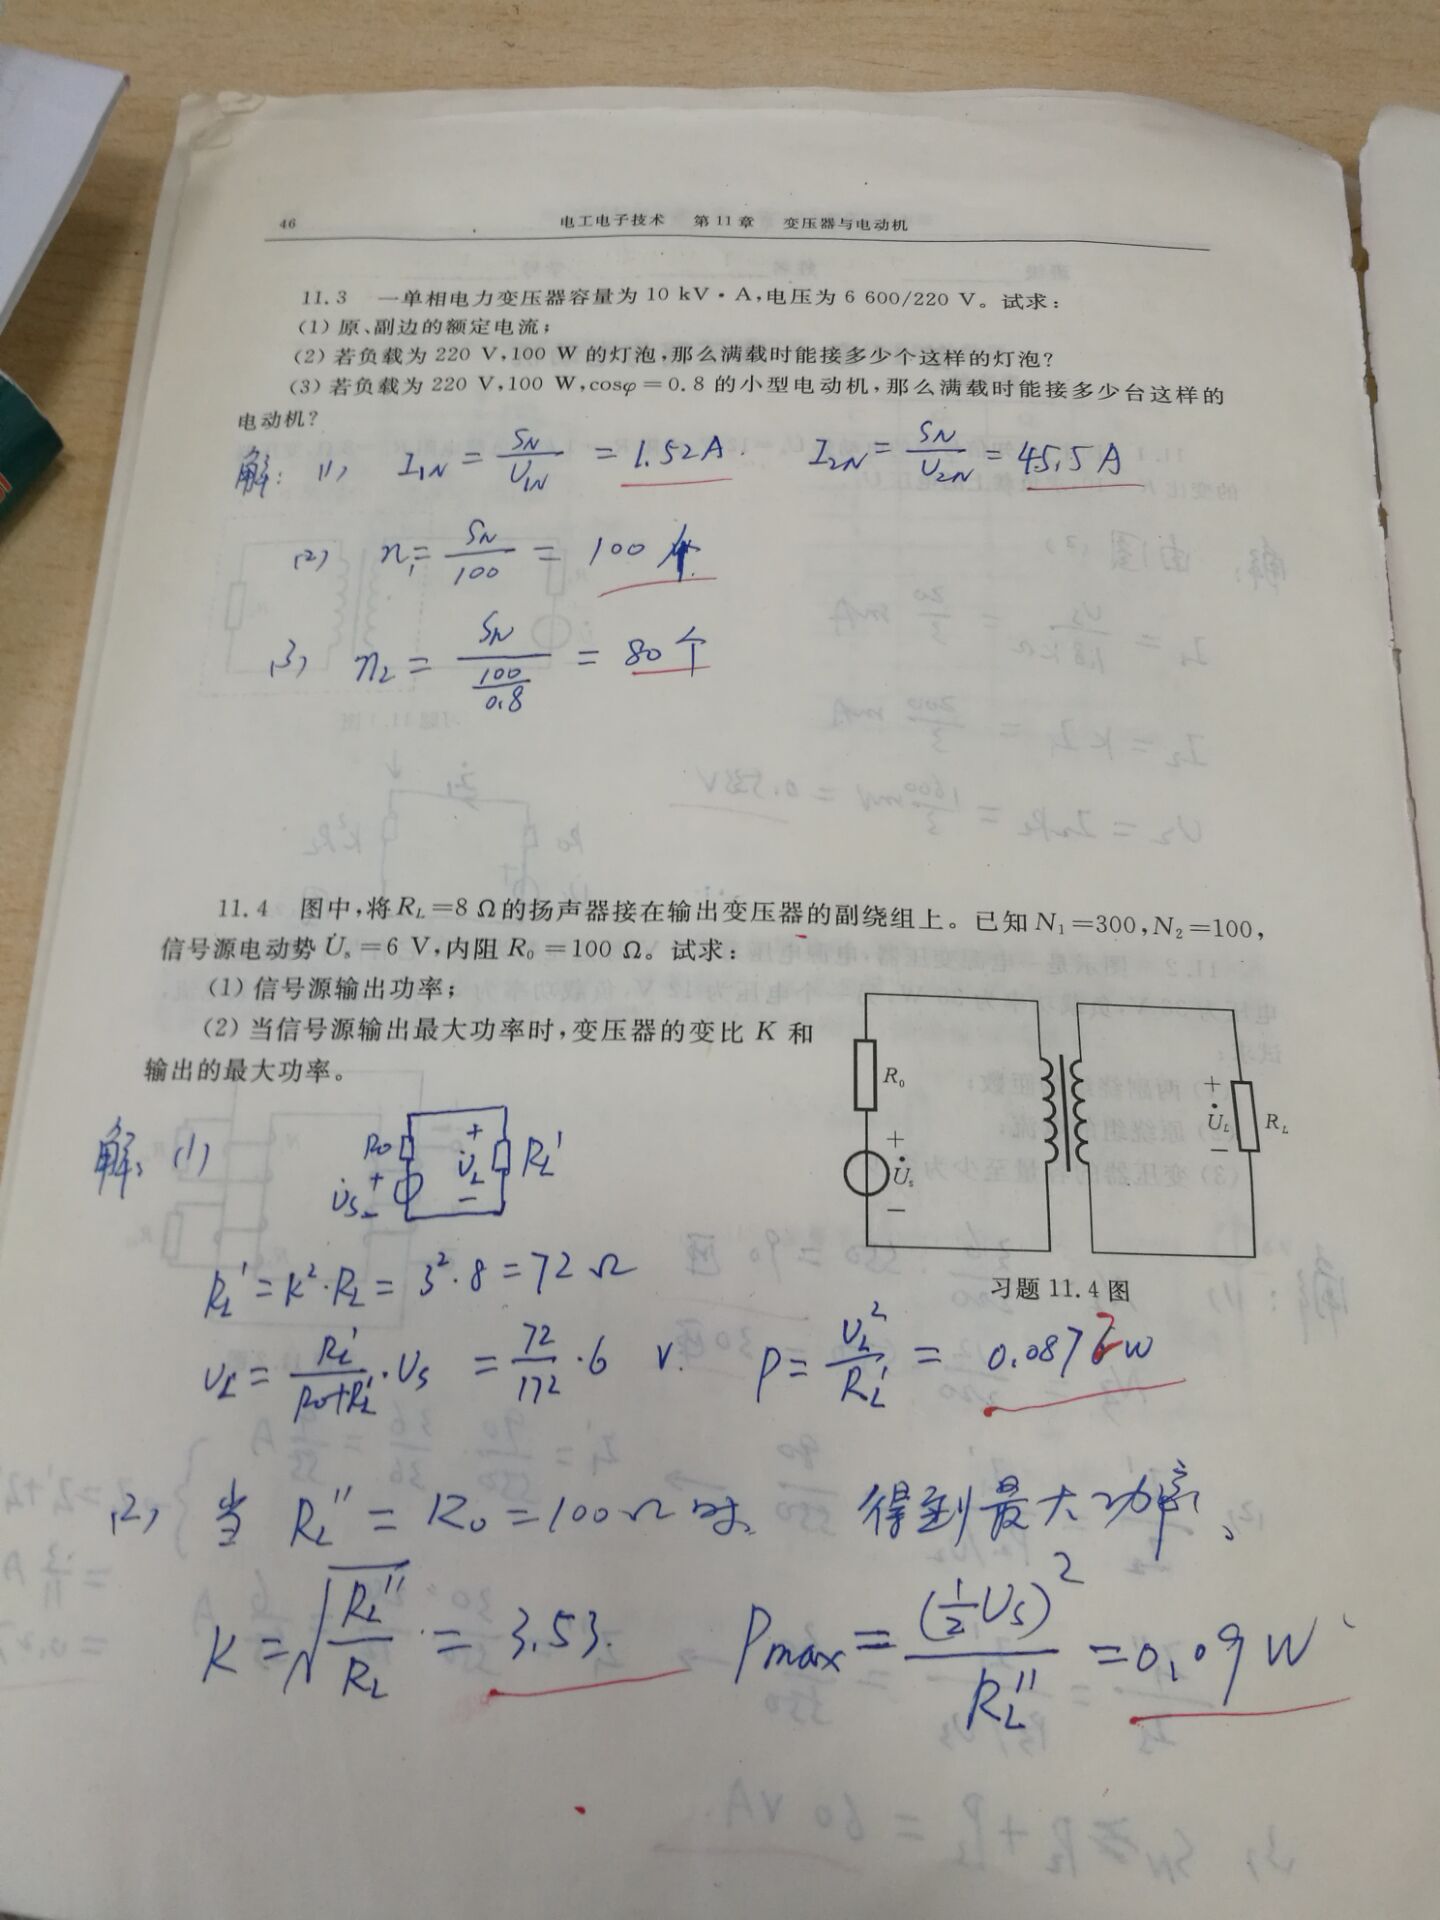 46
电工电子技术 第11章 变压器与电动机
11.3 一单相电力变压器容量为 10 kV·A,电压为 6 600/220 V。试求:
(1) 原、副边的额定电流;
(2) 若负载为 220 V,100 W 的灯泡,那么满载时能接多少个这样的灯泡?
(3) 若负载为 220 V,100 W,cosφ=0.8 的小型电动机,那么满载时能接多少台这样的
电动机?
解: (1) I1N = SN/U1N = 1.52A. I2N = SN/U2N = 45.5A
(2) n1 = SN/100 = 100 个
(3) n2 = SN/(100/0.8) = 80个
11.4 图中,将 RL=8 Ω的扬声器接在输出变压器的副绕组上。已知 N1=300,N2=100,
信号源电动势 U̇s=6 V,内阻 R0=100 Ω。试求:
(1) 信号源输出功率;
(2) 当信号源输出最大功率时,变压器的变比 K 和
输出的最大功率。
R0
+
U̇s
−
+
U̇L
−
RL
习题 11.4 图
解: (1)
R0
+
U̇s
−
+
U̇L
−
RL'
RL' = K²·RL = 3²·8 = 72Ω
UL = RL'/(R0+RL')·Us = 72/172·6 V. P = UL²/RL' = 0.0876W
(2) 当 RL'' = R0 = 100Ω时, 得到最大功率、
K = √(RL''/RL) = 3.53. Pmax = (½Us)²/RL'' = 0.09W